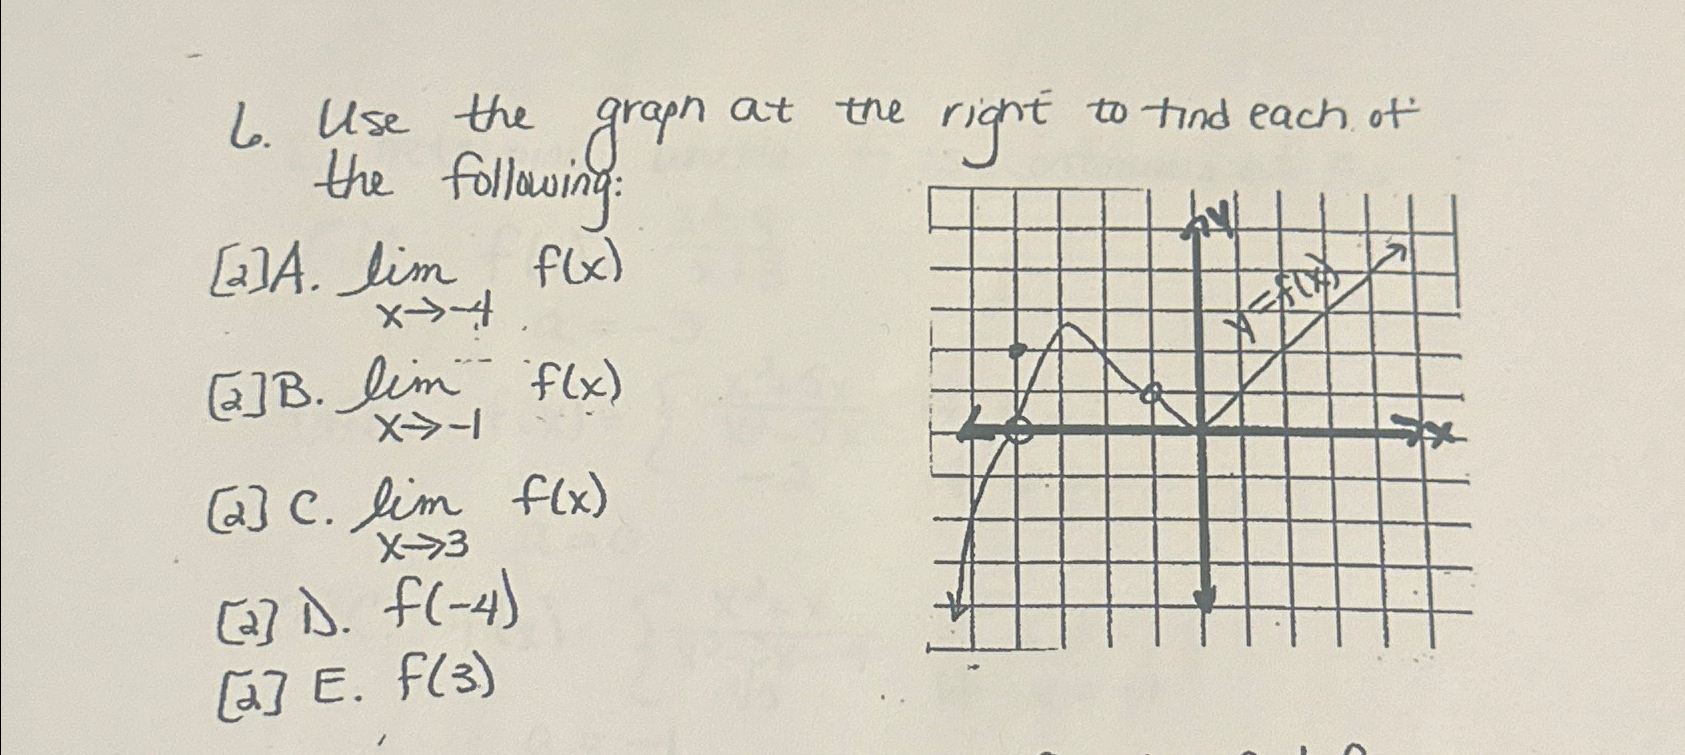 6. Use the graph at the right to find each of
the following:
[2] A. lim x→-4 f(x)
[2] B. lim x→-1 f(x)
[2] C. lim x→3 f(x)
[2] D. f(-4)
[2] E. f(3)
y
y = f(x)
x